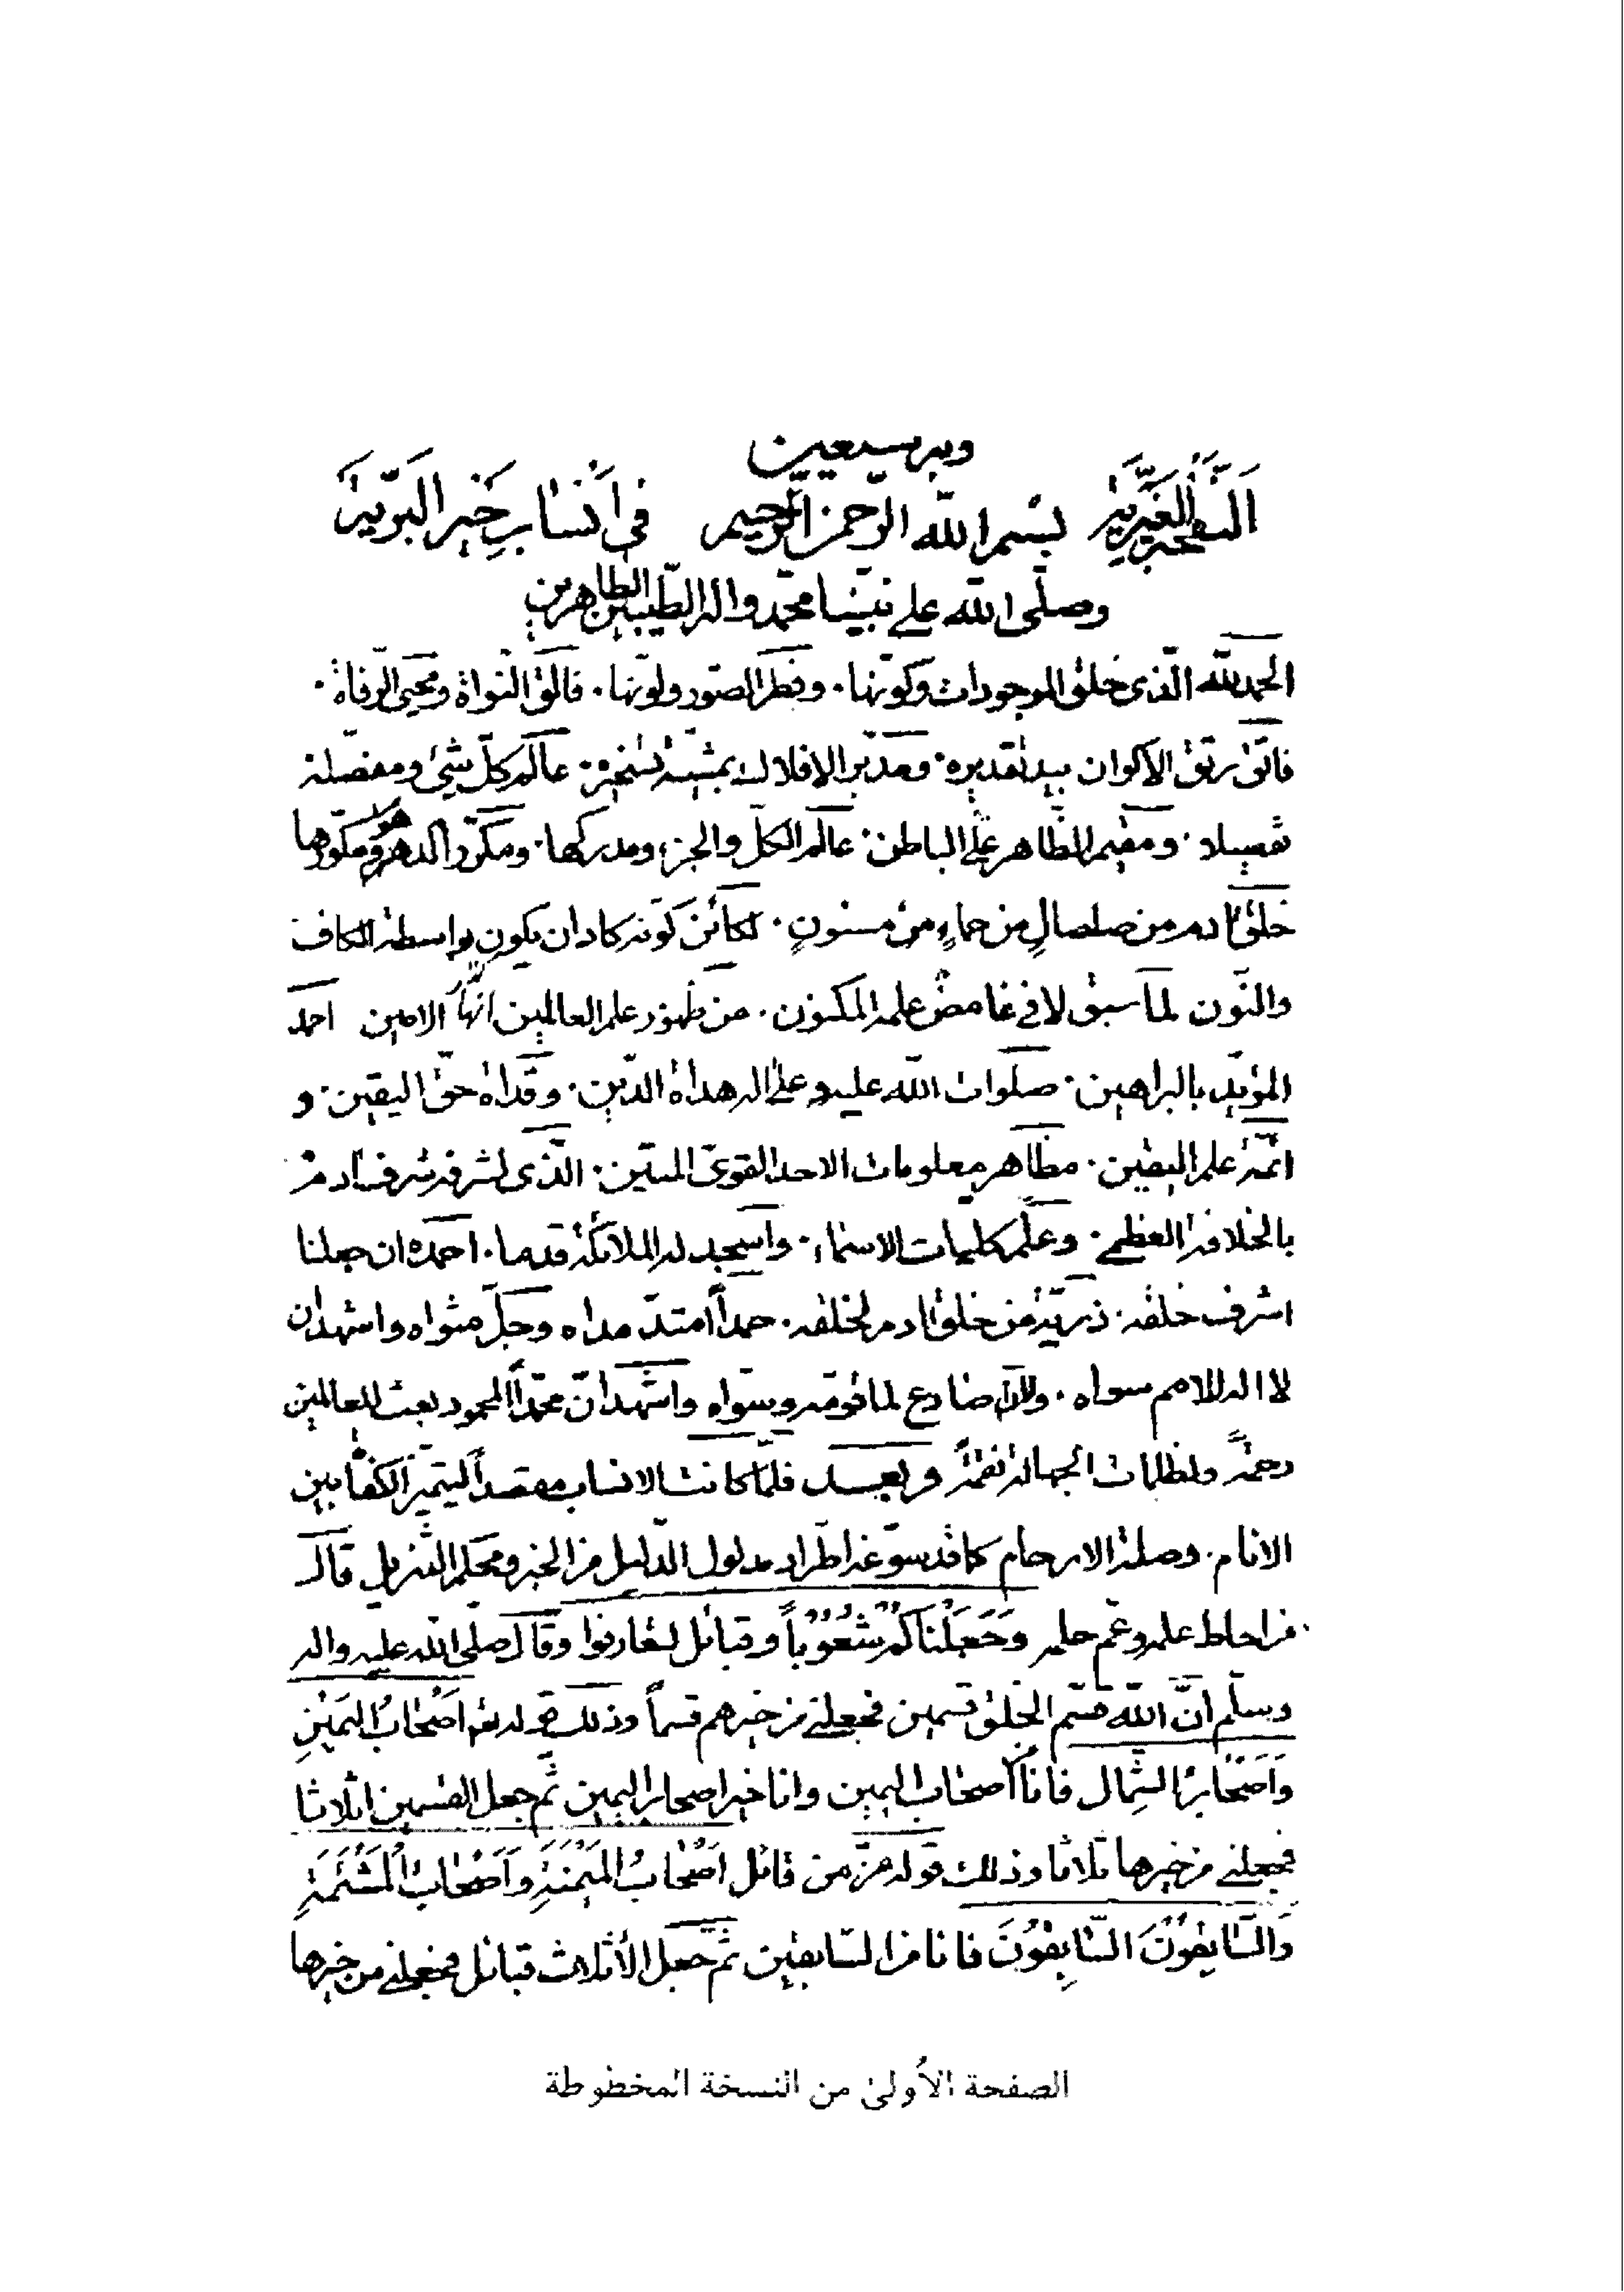 وبه نستعين
النفحة العنبرية بسم الله الرحمن الرحيم في أنساب خير البرية
وصلى الله على نبينا محمد واله الطيبين الطاهرين
الحمد لله الذى خلق الموجودات وكونها . وفطر الصور ولونها . فالق النواة ومحيى الرفاة .
فاتق رتق الاكوان بيد تقديره . ومدبر الافلاك بمشية تسخيره . عالم كل شيئ ومفصله
تفصيلا . ومقيم الظاهر على الباطن . عالم الكل والجزء ومدركها . ومكرر الدهور ومكورها
خلق ادم من صلصال من حماء من مسنون . لكائن كونه كاد ان يكون بواسطة الكاف
والنون لما سبق لا فى غامض علمه المكنون . من ظهور علم العالمين انها الامين احمد
المؤيد بالبراهين . صلوات الله عليه وعلى اله هداة الدين . وقداة حق اليقين . و
ائمة علم اليقين . مظاهر معلومات الاحد القوى المتين . الذى لشرفه شرف ادم
بالخلافة العظمى . وعلمه كليمات الاسماء . واسجد له الملائكة قدما . احمده ان جعلنا
اشرف خلقه . ذرية من خلق ادم لخلقه . حمداً امتد مداه وجل مثواه واشهد ان
لا اله للامم سواه . ولا صادع لما قومه وسواه واشهد ان محمداً المحمود بعث للعالمين
رحمة ولظلمات الجهالة نقمة وبعـــد فلما كانت الانساب مقصداً ليتميز الكفا بين
الانام . وصلة الارحام كما قد سوغه اطراد مدلول الدليل من الخبر ومحكم التنزيل قال
من احاط علمه وعم حلمه وَجَعَلْنَاكُمْ شُعُوْباً وقبائل لتعارفوا وقال صلى الله عليه واله
وسلم ان الله قسم الخلق قسمين فجعلنى من خيرهم قسماً وذلك قوله تعم اَصْحٰابُ اليَمينِ
وَاَصْحٰابُ الشِّمال فانا من اصحاب اليمين وانا خير اصحاب اليمين ثم جعل القسمين اثلاثا
فجعلنى من خيرها ثلاثا وذلك قوله عز من قائل اَصْحٰابُ المَيْمَنَةِ وَاَصْحٰابُ الْمَشْئَمَةِ
وَالسّٰابِقُونَ السّٰابِقُونَ فانا من السابقين ثم جعل الأثلاث قبائل فجعلنى من خيرها
الصفحة الأولىٰ من النسخة المخطوطة